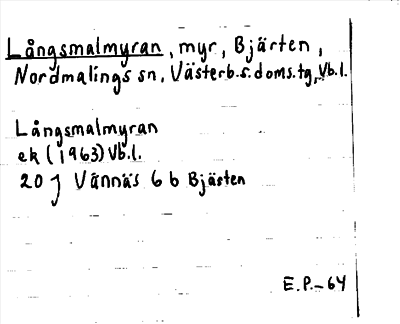 Långsmalmyran, myr, Bjärten,
Nordmalings sn, Västerb.s.doms.tg, Vb.l.
Långsmalmyran
ek (1963) Vb.l.
20 J Vännäs 6 b Bjästen
E.P.-64